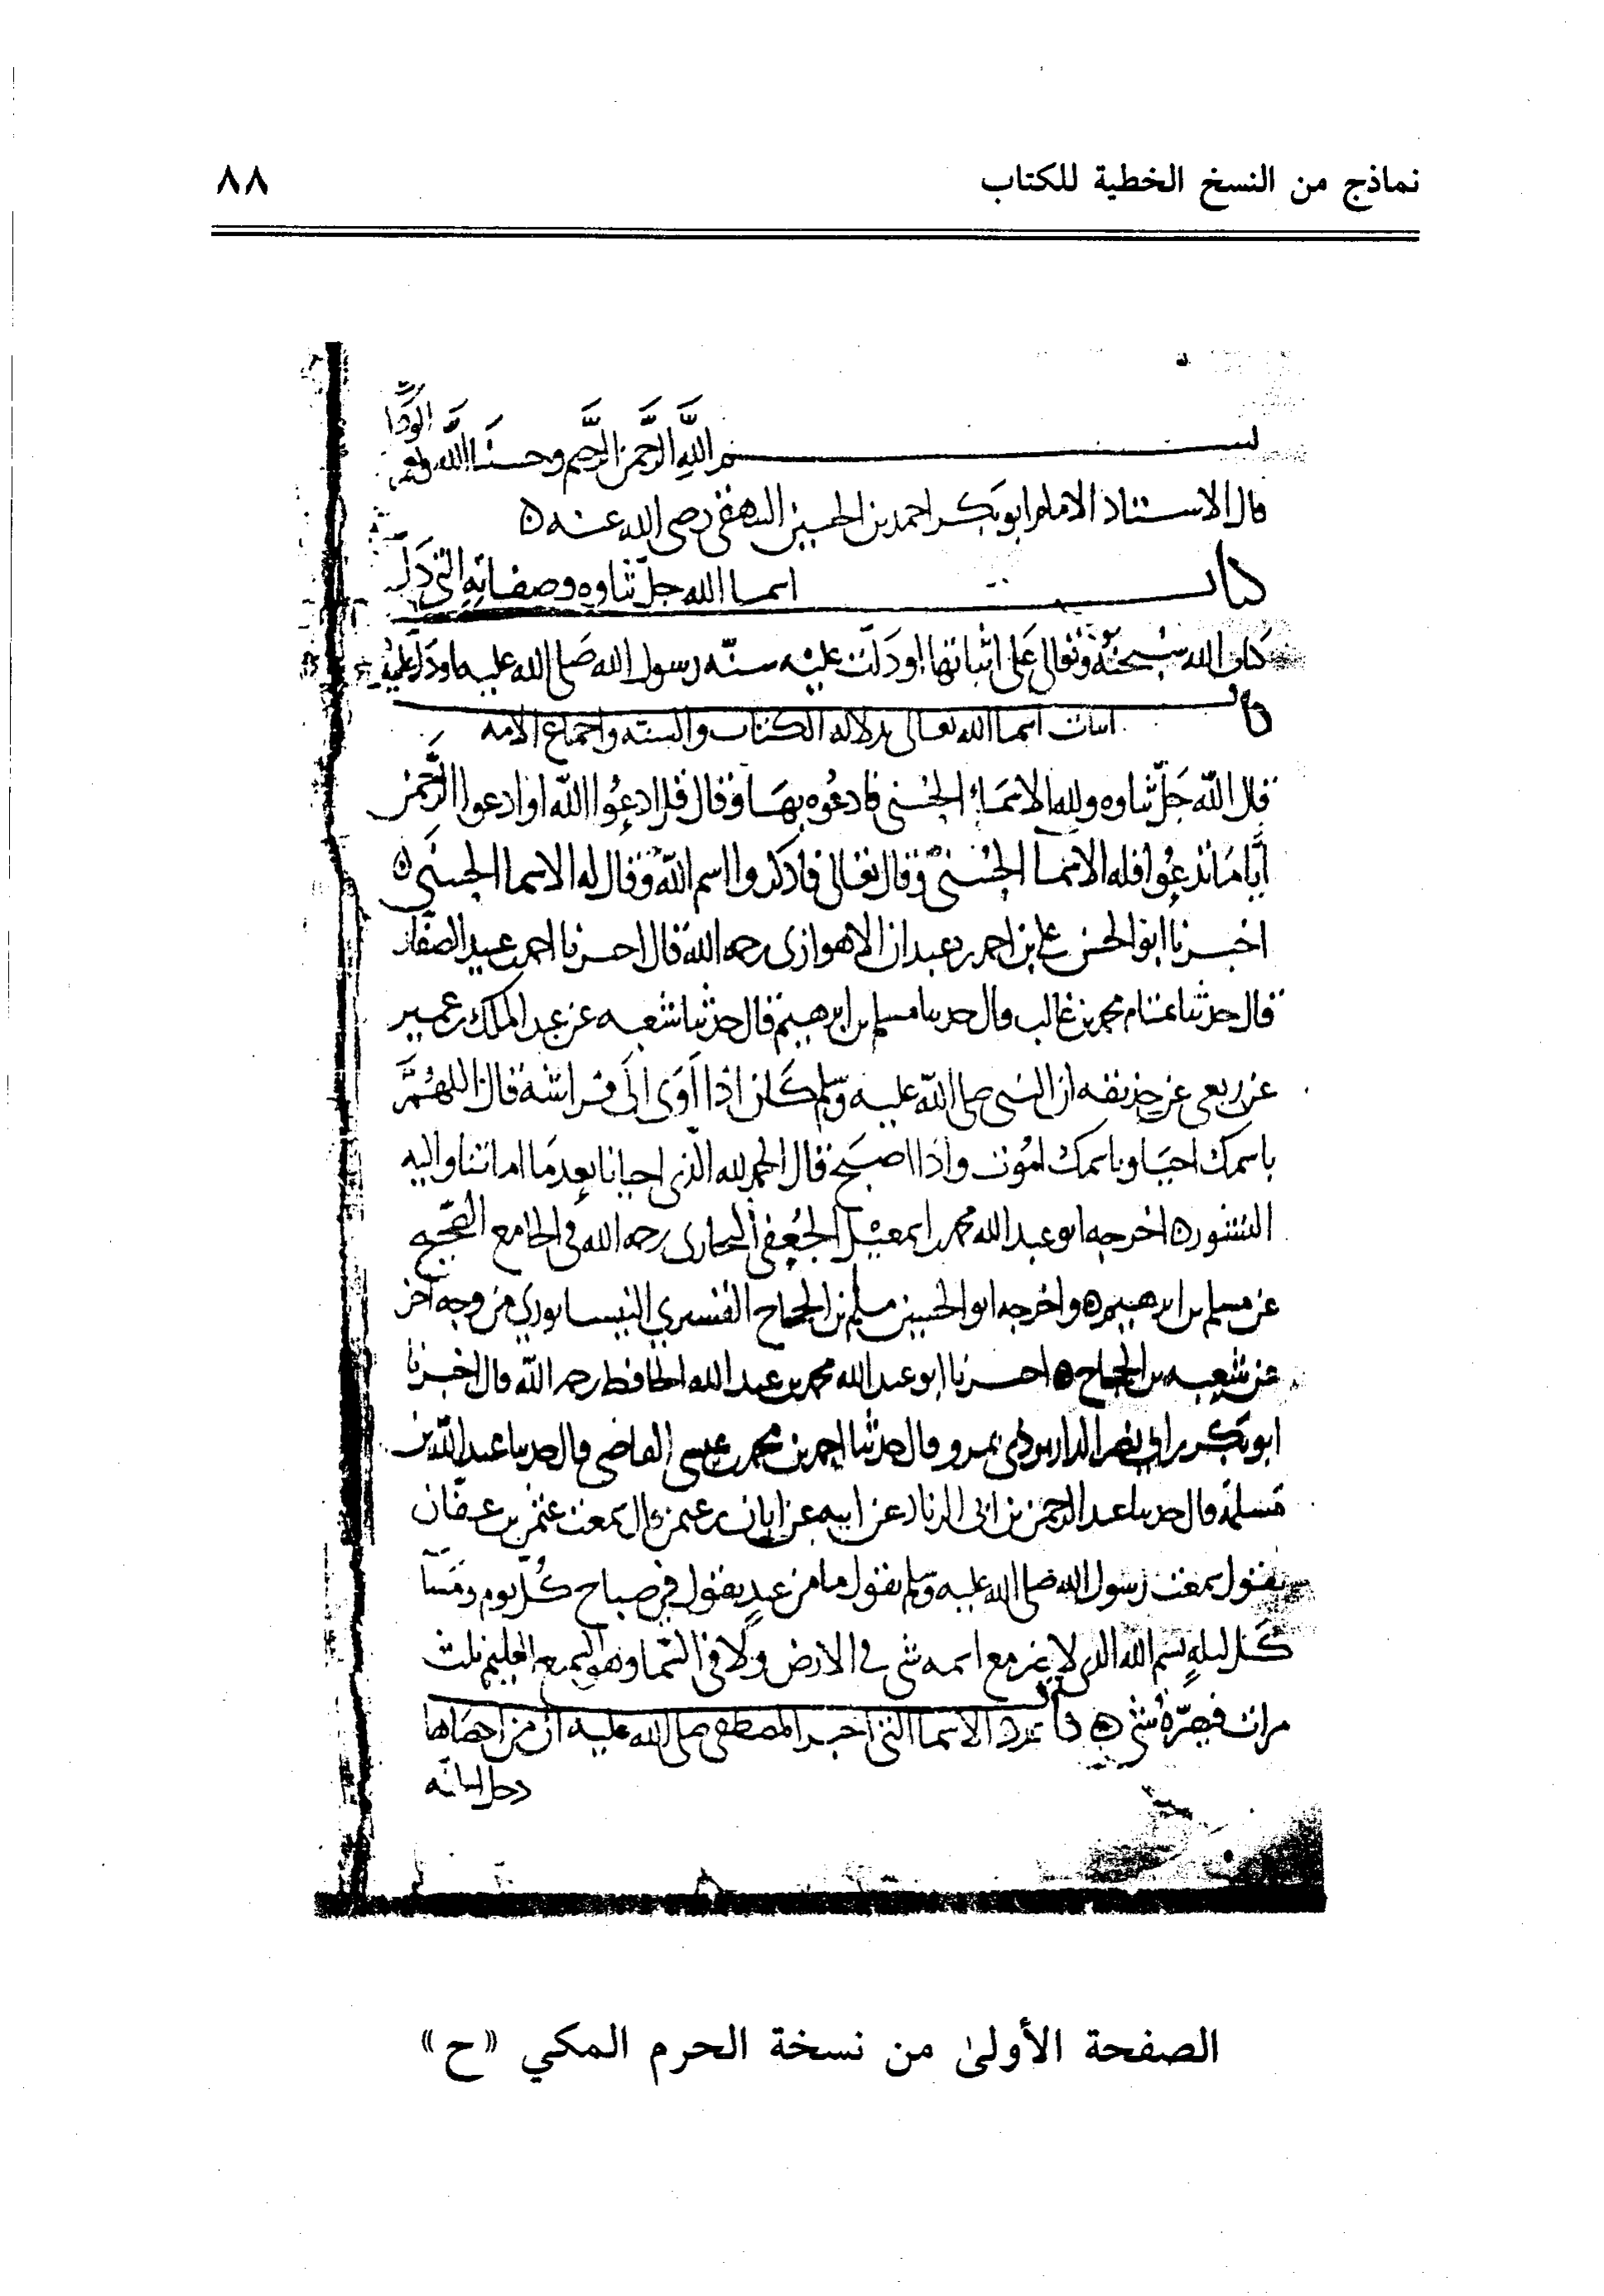 نماذج من النسخ الخطية للكتاب ٨٨
بسم الله الرحمن الرحيم وحسبنا الله ونعم
قال الاستاذ الامام ابو بكر احمد بن الحسين البيهقي رضي الله عنه ه
كتاب اسما الله جل ثناوه وصفاته التي دل
كتاب الله سبحنه وتعالى على اثباتها او دلت عليه سنة رسول الله صلى الله عليه او دل عليه
باب اثبات اسما الله تعالى بدلاله الكتاب والسنه واجماع الامه
قال الله جل ثناوه ولله الاسماء الحسنى فادعوه بها وقال قل ادعوا الله او ادعوا الرحمن
أيا ما تدعوا فله الاسما الحسنى وقال تعالى فاذكروا اسم الله وقال له الاسما الحسنى ه
اخبرنا ابو الحسن علي بن احمد بن عبدان الاهوازى رحمه الله قال اخبرنا احمد بن عبيد الصفار
قال حدثنا تمتام محمد بن غالب قال حدثنا مسلم بن ابرهيم قال حدثنا شعبه عن عبد الملك بن عمير
عن ربعي عن حذيفه ان النبي صلى الله عليه وسلم كان اذا أوى الى فراشه قال اللهم
باسمك احيا وباسمك اموت واذا اصبح قال الحمد لله الذي احيانا بعد ما اماتنا واليه
النشور ه اخرجه ابو عبد الله محمد بن اسمعيل الجعفي البخاري رحمه الله في الجامع الصحيح
عن مسلم بن ابرهيم ه واخرجه ابو الحسين مسلم بن الحجاج القشيري النيسابوري من وجه آخر
عن شعبه بن الحجاج ه اخبرنا ابو عبد الله محمد بن عبد الله الحافظ رحمه الله قال اخبرنا
ابو بكر بن ابي نصر الداربردي بمرو قال حدثنا احمد بن محمد بن عيسى القاضي قال حدثنا عبد الله بن
مسلمة قال حدثنا عبد الرحمن بن ابي الزناد عن ابيه عن ابان بن عثمن قال سمعت عثمن بن عفان
يقول سمعت رسول الله صلى الله عليه وسلم يقول ما من عبد يقول في صباح كل يوم ومسآ
كل ليلة بسم الله الذي لا يضر مع اسمه شي في الارض ولا في السما وهو السميع العليم ثلث
مرات فيضره شي ه باب عدد الاسما التي اخبر المصطفى صلى الله عليه ان من احصاها
دخل الجنة
الصفحة الأولىٰ من نسخة الحرم المكي «ح»